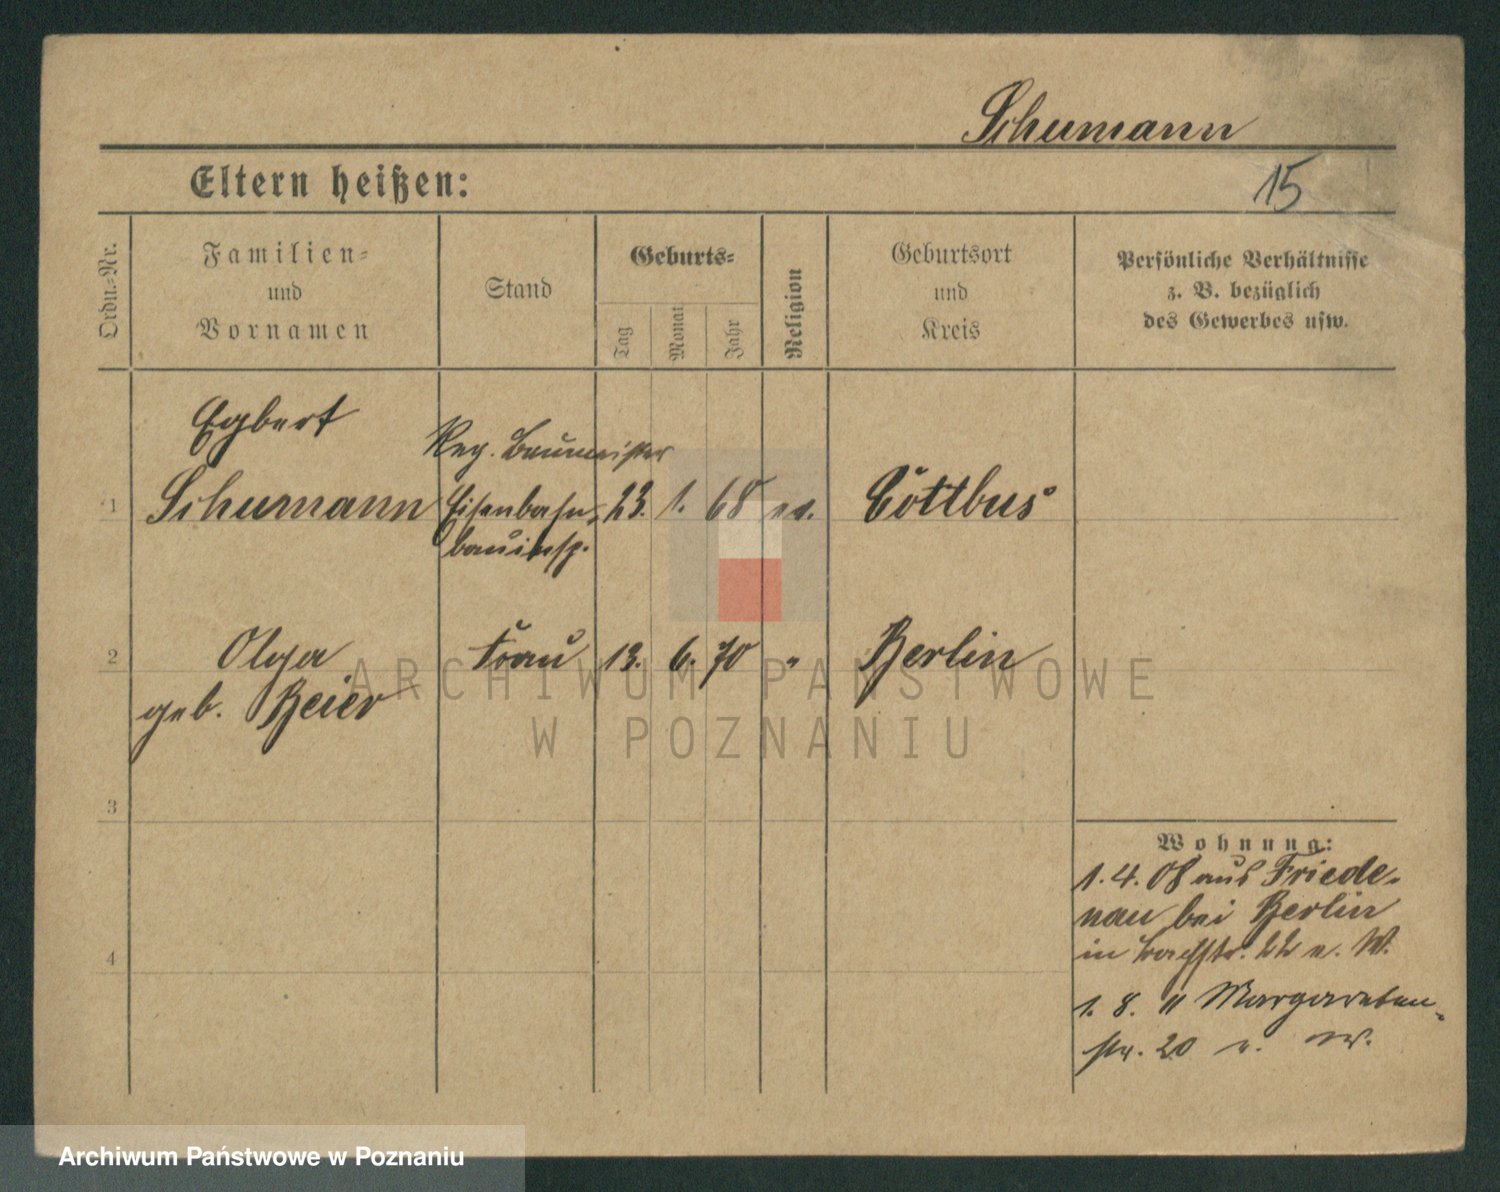 Schumann
Eltern heißen:
15
Ordn.-Nr.
Familien-
und
Vornamen
Stand
Geburts-
Tag
Monat
Jahr
Religion
Geburtsort
und
Kreis
Persönliche Verhältnisse
z. B. bezüglich
des Gewerbes usw.
Egbert
Reg. Baumeister
1 Schumann Eisenbahn- 23. 1. 68 ev. Cottbus
bauinsp.
2 Olga Frau 13. 6. 70 " Berlin
geb. Beier
3
Wohnung:
1.4.08 aus Friede-
nau bei Berlin
in 22 W.
4
1. 8. 11 Margareten-
str. 20
ARCHIWUM PAŃSTWOWE
W POZNANIU
Archiwum Państwowe w Poznaniu